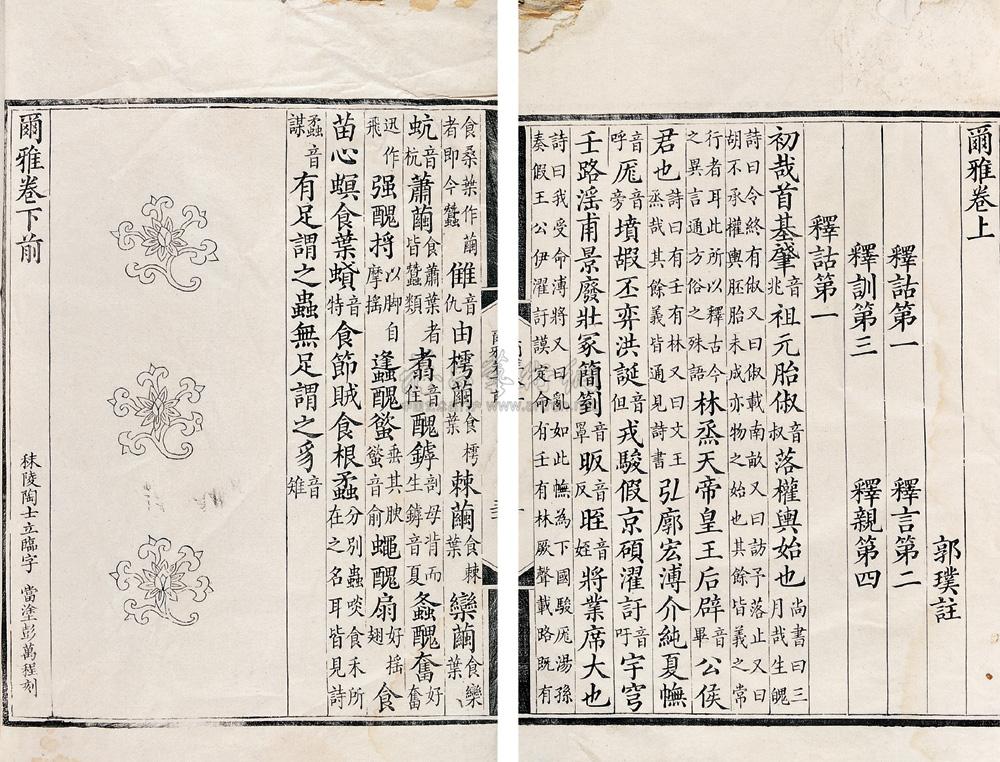 爾雅卷上
郭璞註
釋詁第一 釋言第二
釋訓第三 釋親第四
釋詁第一
初哉首基肇音兆祖元胎俶音叔落權輿始也尚書曰三月哉生魄
詩曰令終有俶又曰俶載南畝又曰訪予落止又曰胡不承權輿胚胎未成亦物之始也其餘皆義之常
行者耳此所以釋古今之異言通方俗之殊語林烝天帝皇王后辟音畢公侯
君也詩曰有壬有林又曰文王烝哉其餘義皆通見詩書弘廓宏溥介純夏幠
音呼厖音旁墳嘏丕弈洪誕音但戎駿假京碩濯訏音吁宇穹
壬路淫甫景廢壯冢簡箌音罩昄音反晊音姪將業席大也
詩曰我受命溥將又曰亂如此幠為下國駿厖湯孫奏假王公伊濯訏謨定命有壬有林厥聲載路既有
食桑葉作繭者即今蠶雔音仇由樗繭食樗葉棘繭食棘葉欒繭食欒葉
蚢音杭蕭繭食蕭葉者皆蠶類翥音住醜罅剖母背而生罅音夏螽醜奮好奮
迅作飛强醜捋以脚自摩搖蠭醜螸垂其腴螸音俞蠅醜扇好搖翅食
苗心螟食葉蟘音特食節賊食根蟊分別蟲啖食禾所在之名耳皆見詩
蟊音謀有足謂之蟲無足謂之豸音雉
爾雅卷下前
秣陵陶士立臨字 當塗彭萬程刻